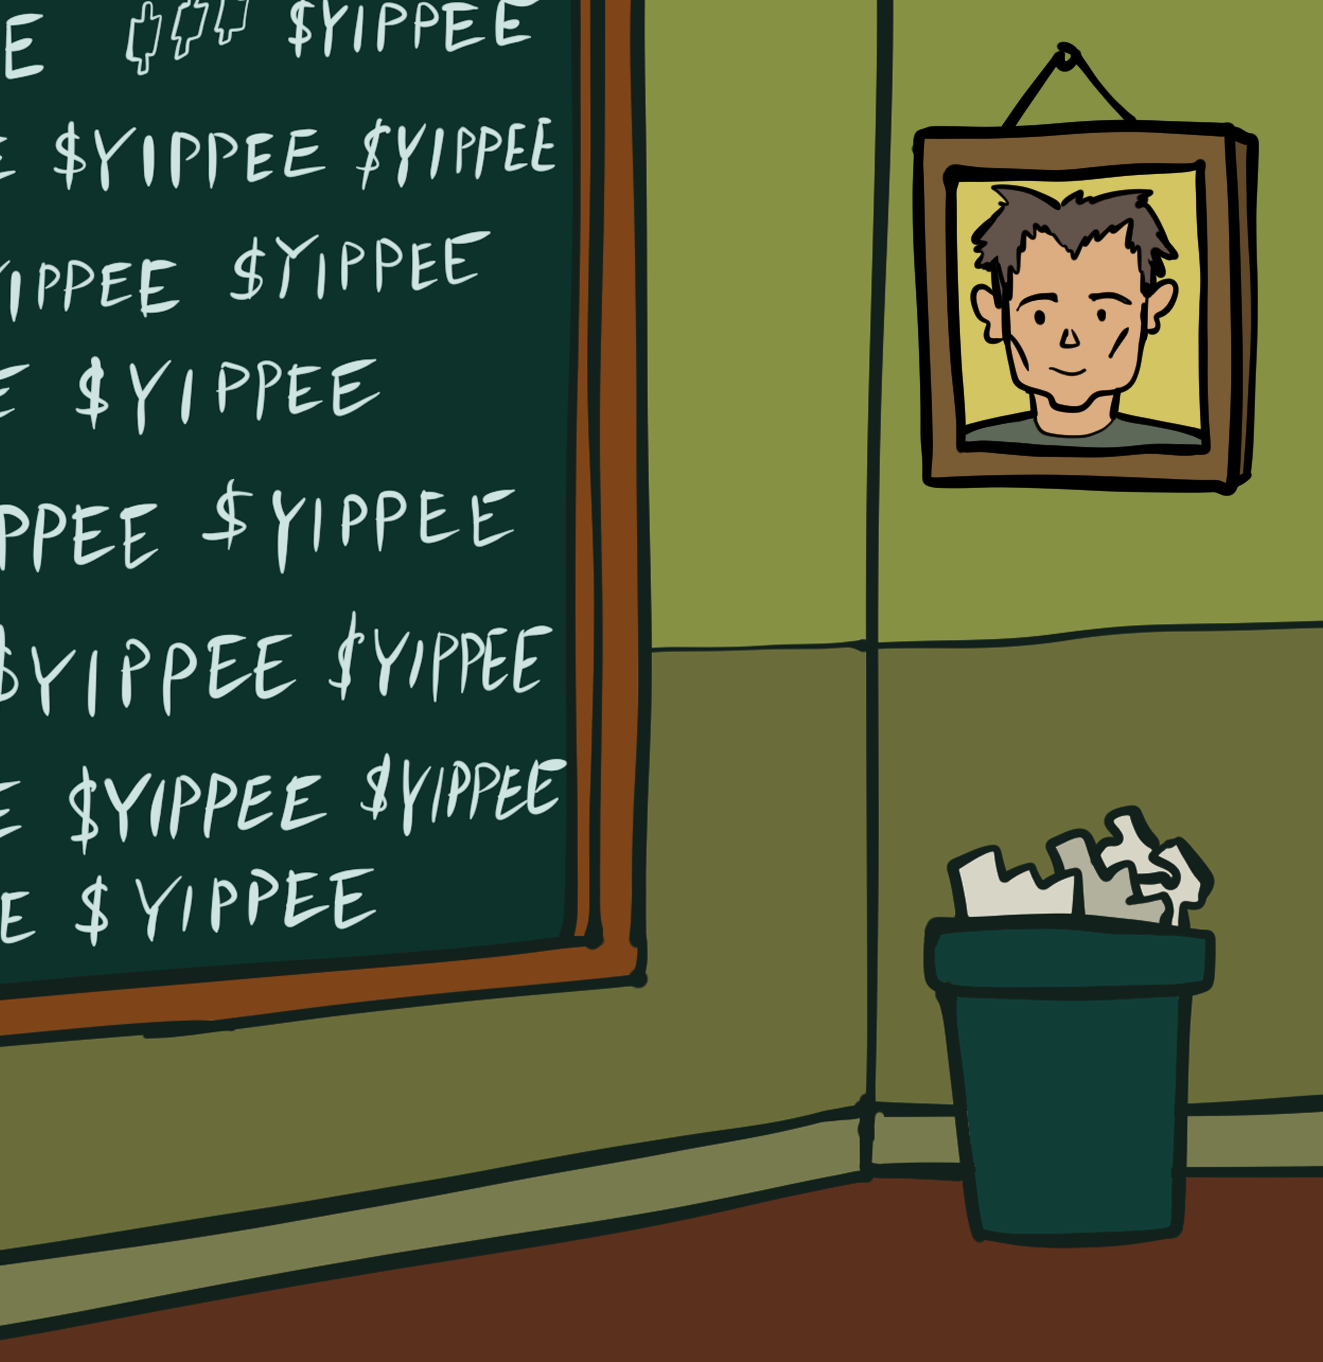 E $YIPPEE
E $YIPPEE $YIPPEE
YIPPEE $YIPPEE
E $YIPPEE
PPEE $YIPPEE
$YIPPEE $YIPPEE
E $YIPPEE $YIPPEE
E $YIPPEE